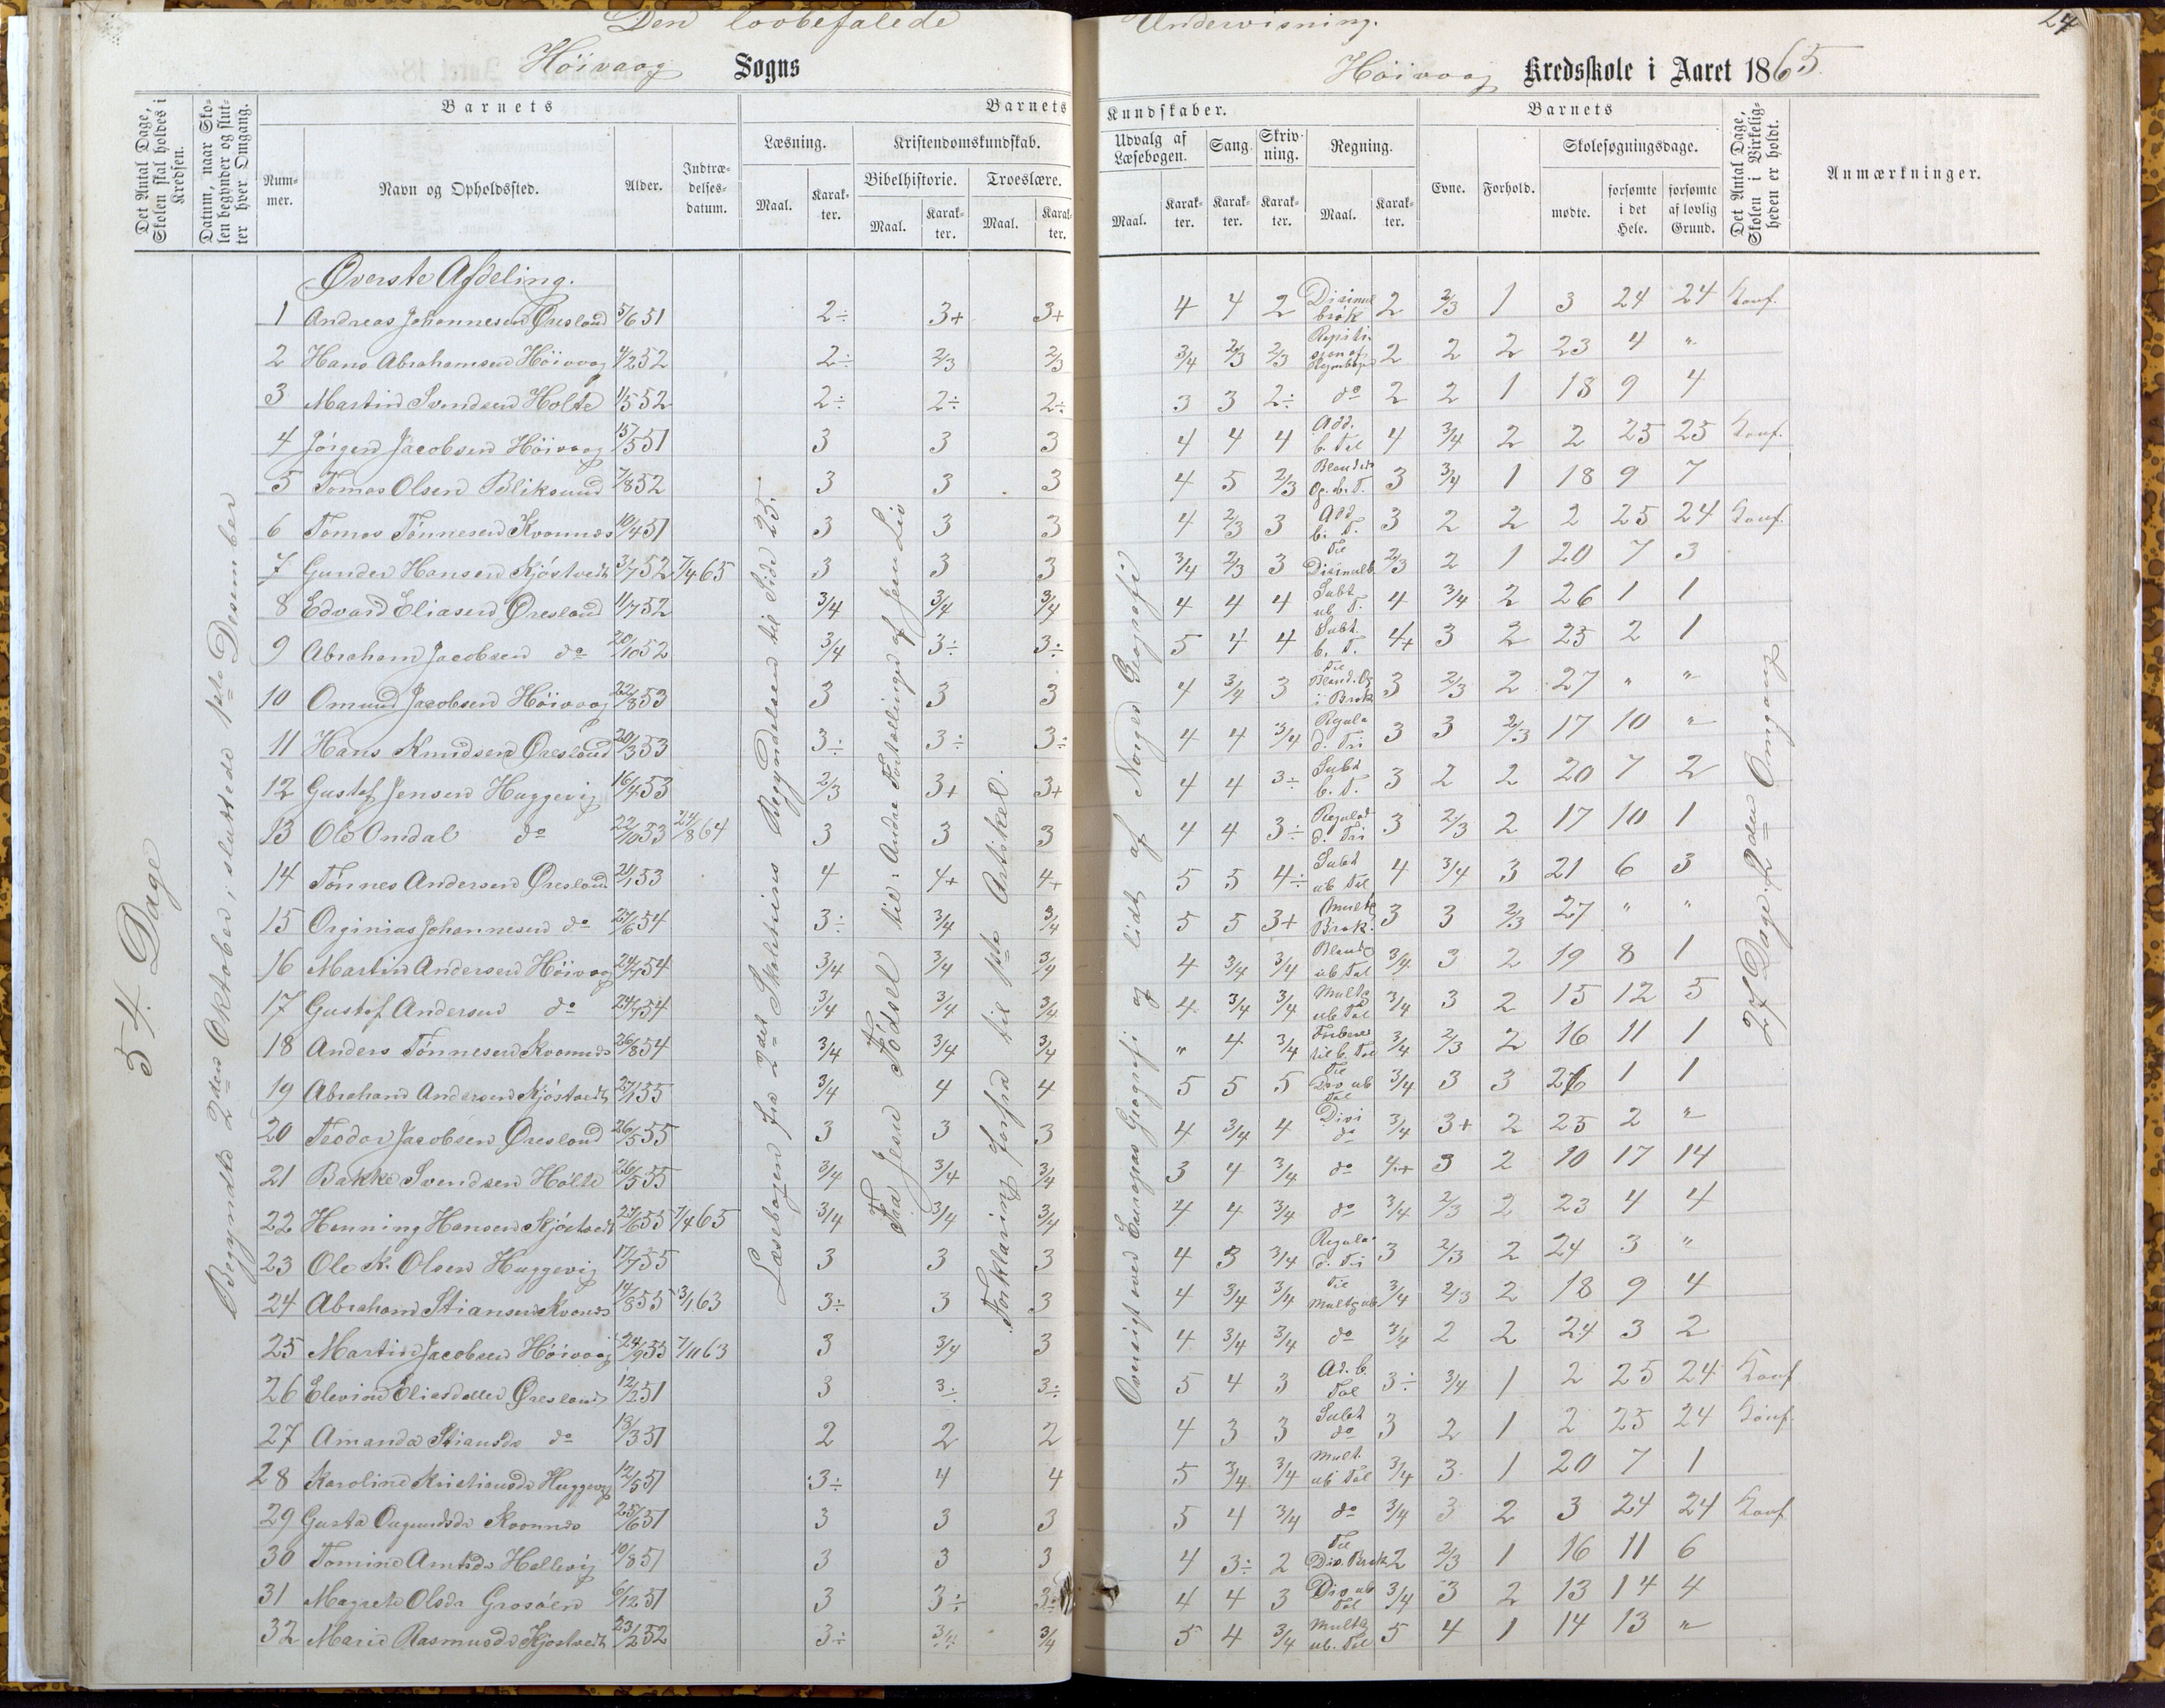 Den lovbefalede Undervisning.
24
Höivaag Sogns
Höivaag Kredsskole i Aaret 1865.
Det Antal Dage, Skolen skal holdes i Kredsen.
Datum, naar Skolen begynder og slutter hver Omgang.
Barnets
Nummer.
Navn og Opholdssted.
Alder.
Indtrædelsesdatum.
Barnets Kundskaber.
Læsning.
Maal.
Karakter.
Kristendomskundskab.
Bibelhistorie.
Maal.
Karakter.
Troeslære.
Maal.
Karakter.
Udvalg af Læsebogen.
Maal.
Karakter.
Sang.
Karakter.
Skrivning.
Karakter.
Regning.
Maal.
Karakter.
Barnets
Evne.
Forhold.
Skolesøgningsdage.
mødte.
forsømte i det Hele.
forsømte af lovlig Grund.
Det Antal Dage, Skolen i Virkeligheden er holdt.
Anmærkninger.
54 Dage
Begyndte 2den Oktober, sluttede 1ste Desember
Læsebogen fra 2det Skoletrins Begyndelsen til Side 25.
Fra Jesu Födsel til: Andre Fortællinger af Jesu Liv
Forklaring forfra til 1ste Artikel.
Oversigt over Europas Geografi og lidt af Norges Geografi
27 Dage; 2den Omgang
Øverste Afdeling.
1 Andreas Johannesen Øresland 5/6 51 2÷ 3+ 3+ 4 4 2 Disimal brøk 2 2/3 1 3 24 24 Konf.
2 Hans Abrahamsen Höivaag 4/2 52 2÷ 2/3 2/3 3/4 2/3 2/3 2 2 2 23 4 "
3 Martin Svendsen Holte 1/5 52 2÷ 2÷ 2÷ 3 3 2÷ do 2 2 1 18 9 4
4 Jörgen Jacobsen Höivaag 15/5 51 3 3 3 4 4 4 Add. b. Tal 4 3/4 2 2 25 25 Konf.
5 Tomas Olsen Bliksund 7/8 52 3 3 3 4 5 2/3 3 3/4 1 18 9 7
6 Tomas Tönnesen Kvannes 10/4 51 3 3 3 4 2/3 3 Add b. T. 3 2 2 2 25 24 Konf.
7 Gunder Hansen Kjöstvedt 3/7 52 7/4 65 3 3 3 3/4 2/3 3 Til Disimalb. 2/3 2 1 20 7 3
8 Edvard Eliasen Øresland 1/7 52 3/4 3/4 3/4 4 4 4 Subt ub T. 4 3/4 2 26 1 1
9 Abraham Jacobsen do 20/10 52 3/4 3÷ 3÷ 5 4 4 Subt. b. T. 4+ 3 2 25 2 1
10 Omund Jacobsen Höivaag 22/8 53 3 3 3 4 3/4 3 Til Bland. Og i Brøk 3 2/3 2 27 " "
11 Hans Knudsen Øresland 20/3 53 3÷ 3÷ 3÷ 4 4 3/4 Regula d. Tri 3 3 2/3 17 10 "
12 Gustaf Jensen Huggevig 16/4 53 2/3 3+ 3+ 4 4 3÷ Subt b. T. 3 2 2 20 7 2
13 Ole Omdal do 22/10 53 24/8 64 3 3 3 4 4 3÷ Regula d. Tri 3 2/3 2 17 10 1
14 Tönnes Andersen Øresland 21/1 53 4 4+ 4+ 5 5 4÷ Subt ub Tal 4 3/4 3 21 6 3
15 Orginius Johannesen do 27/6 54 3÷ 3/4 3/4 5 5 3+ Multq Brøk. 3 3 2/3 27 " "
16 Martin Andersen Höivaag 24/7 54 3/4 3/4 3/4 4 3/4 3/4 ub Tal 3/4 3 2 19 8 1
17 Gustaf Andersen do 24/7 54 3/4 3/4 3/4 4 3/4 3/4 Multq ub Tal 3/4 3 2 15 12 5
18 Anders Tönnesen Kvannes 26/8 54 3/4 3/4 3/4 " 4 3/4 til b. Tal 3/4 2/3 2 16 11 1
19 Abraham Andersen Kjöstvedt 27/1 55 3/4 4 4 5 5 5 Til Div ub Tal 3/4 3 3 26 1 1
20 Teodor Jacobsen Øresland 26/5 55 3 3 3 4 3/4 4 Divi do 3/4 3+ 2 25 2 "
21 Bakke Svendsen Holte 26/5 55 3/4 3/4 3/4 3 4 3/4 do 4+ 3 2 10 17 14
22 Henning Hansen Kjöstvedt 27/6 55 7/4 65 3/4 3/4 3/4 4 4 3/4 do 3/4 2/3 2 23 4 4
23 Ole K. Olsen Huggevig 17/7 55 3 3 3 4 3 3/4 Regula d. Tri 3 2/3 2 24 3 "
24 Abraham Stiansen Kvannes 14/8 55 3/1 63 3÷ 3 3 4 3/4 3/4 Til Multq ub 3/4 2/3 2 18 9 4
25 Martin Jacobsen Höivaag 24/9 55 7/11 63 3 3/4 3 4 3/4 3/4 do 3/4 2 2 24 3 2
26 Elevine Eliasdatter Øresland 12/2 51 3 3÷ 3÷ 5 4 3 Ad. b. Tal 3÷ 3/4 1 2 25 24 Konf
27 Amanda Stiansdr do 13/3 51 2 2 2 4 3 3 Subt do 3 2 1 2 25 24 Konf.
28 Karoline Kristiansdr Huggevig 12/5 51 3÷ 4 4 5 3/4 3/4 Mult. ub Tal 3/4 3 1 20 7 1
29 Gusta Oagundsdr Kvannes 25/6 51 3 3 3 5 4 3/4 do 3/4 3 2 3 24 24 Konf
30 Tomine Hellevig 10/8 51 3 3 3 4 3÷ 2 Til Div. Brøk 2 2/3 1 16 11 6
31 Magrete Olsdr Grosöen 6/12 51 3 3÷ 3÷ 4 4 3 Div ub Tal 3/4 3 2 13 14 4
32 Marie Rasmusdr Kjöstvedt 23/2 52 3÷ 3/4 3/4 5 4 3/4 Multq ub. Tal 5 4 1 14 13 "